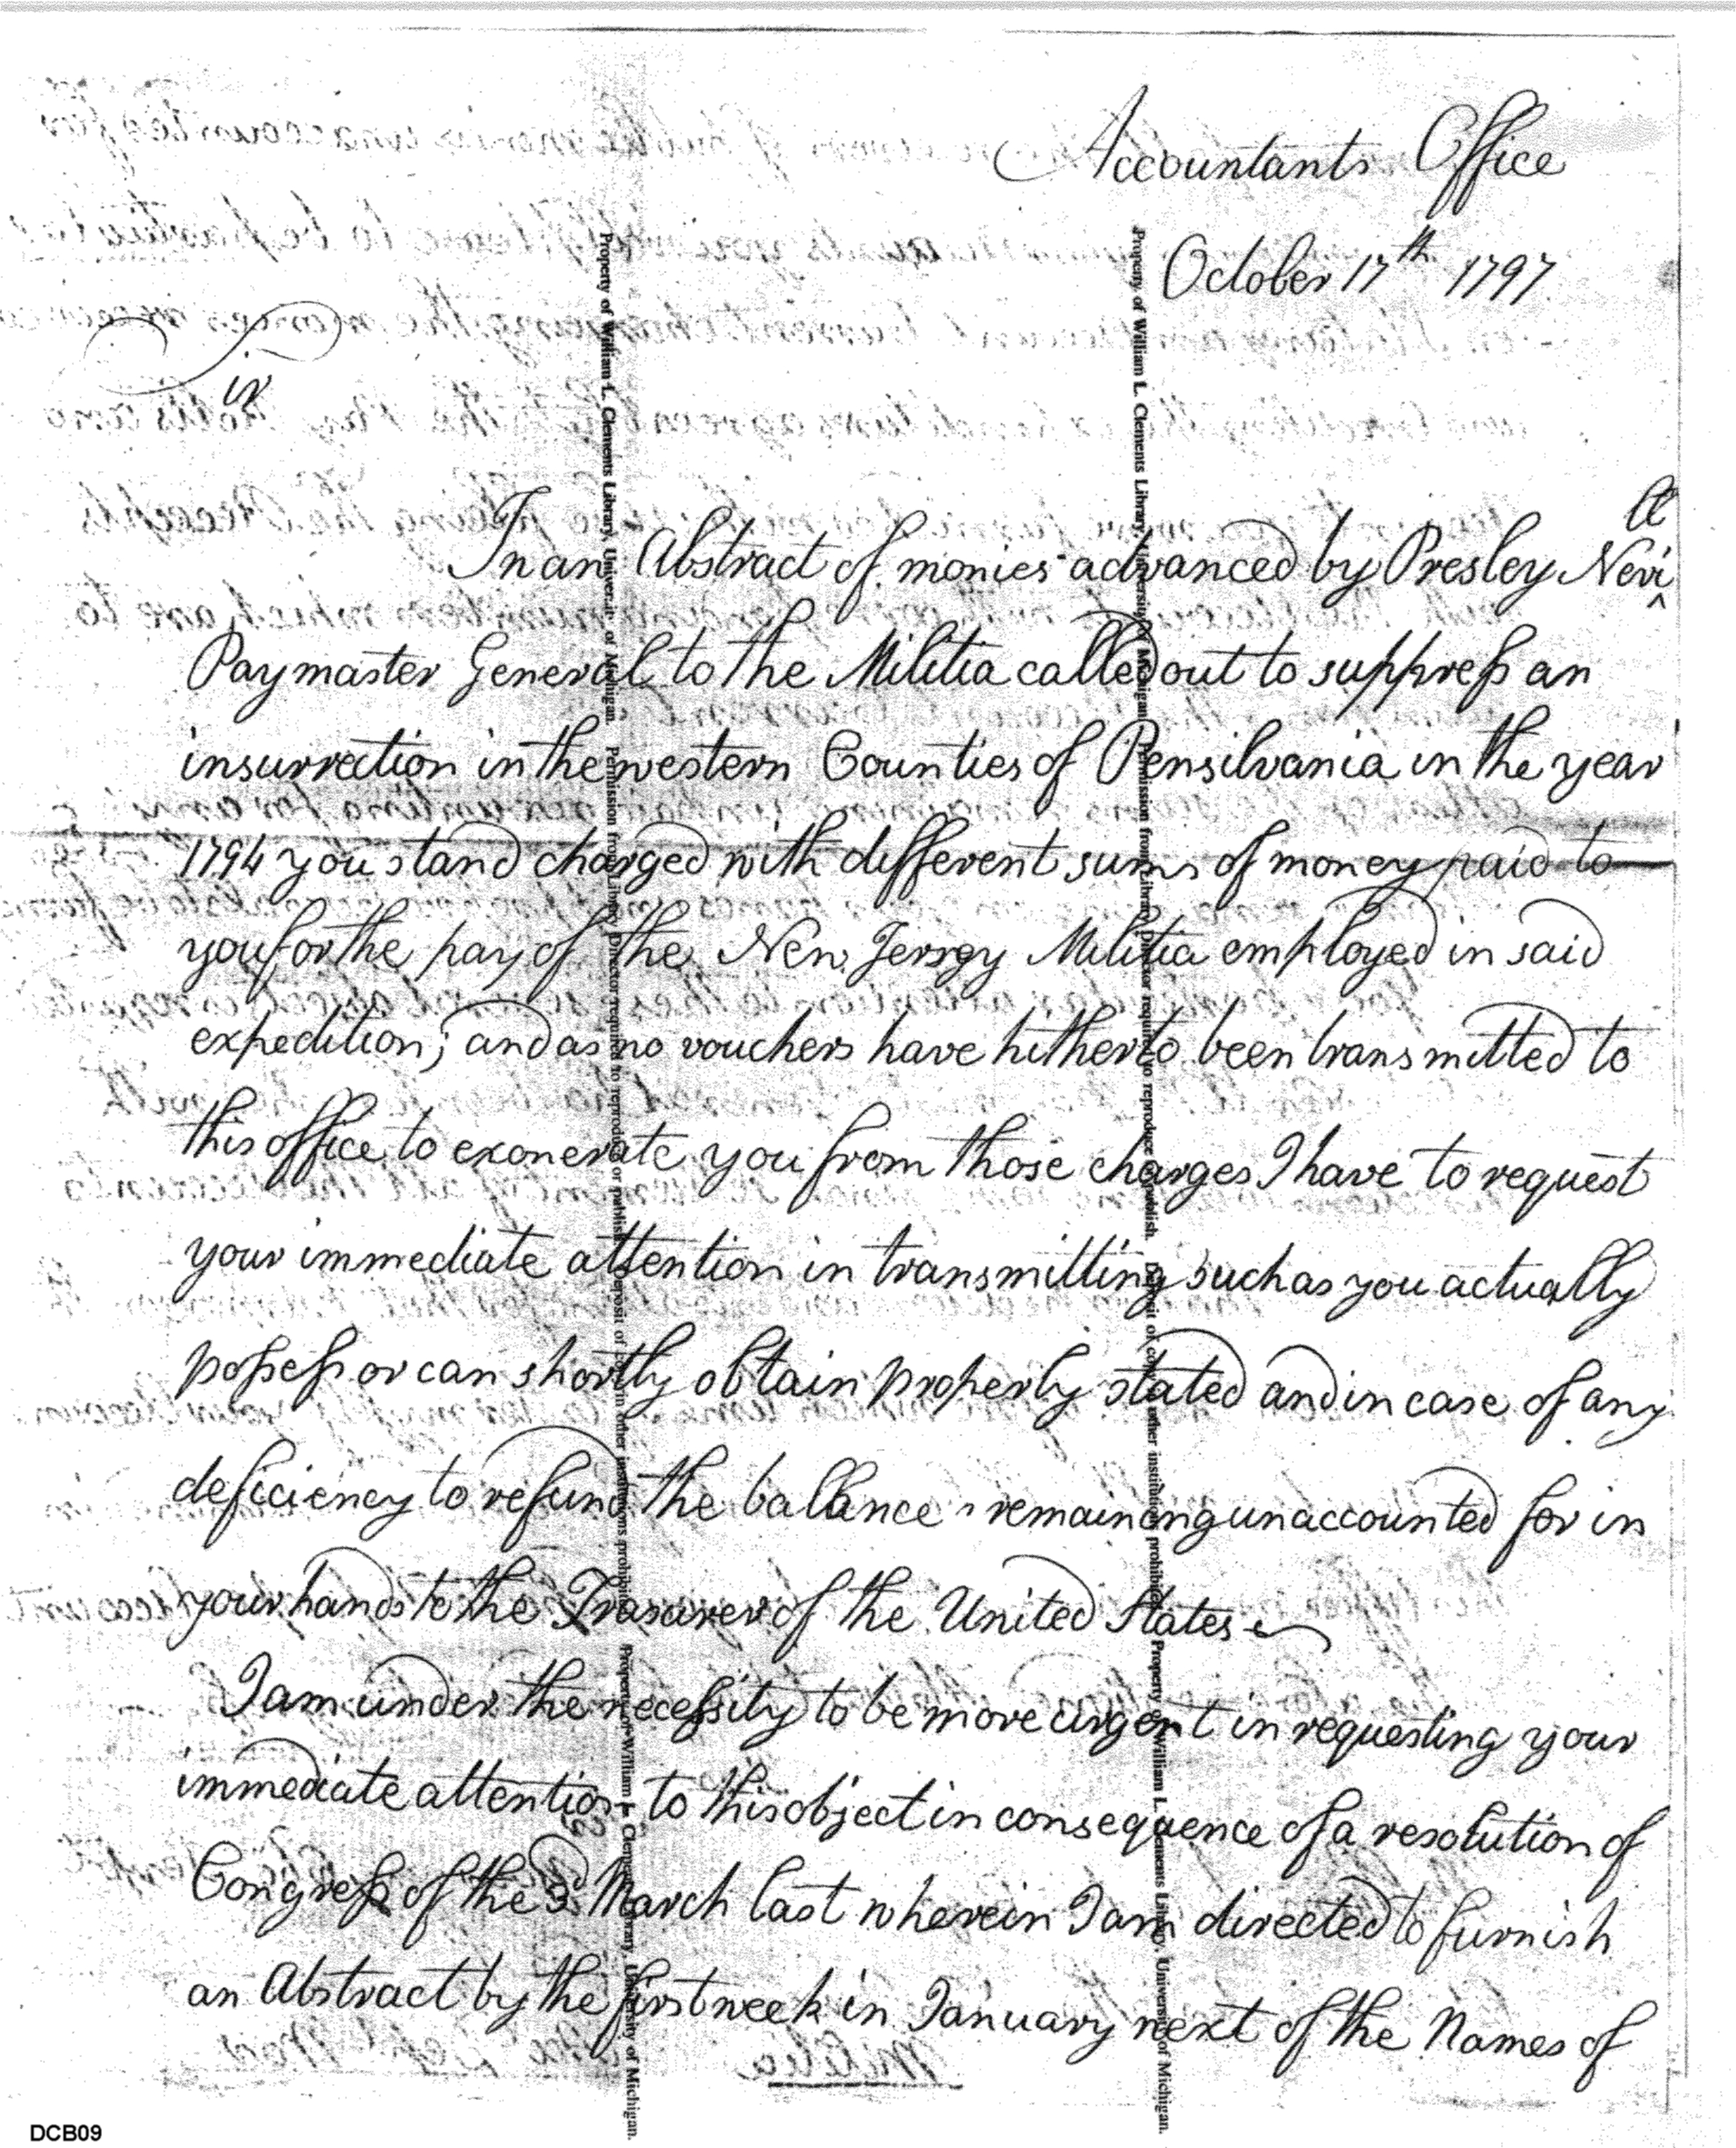 Accountants Office
October 17th 1797
Sir
In an Abstract of monies advanced by Presley Nevill
Paymaster General to the Militia called out to suppress an
insurrection in the western Counties of Pensilvania in the year
1794 you stand charged with different sums of money paid to
you for the pay of the New Jersey Militia employed in said
expedition; and as no vouchers have hitherto been transmitted to
this office to exonerate you from those charges I have to request
your immediate attention in transmitting such as you actually
possess or can shortly obtain properly stated and in case of any
deficiency to refund the ballance remaining unaccounted for in
your hands to the Treasurer of the United States
I am under the necessity to be more urgent in requesting your
immediate attention to this object in consequence of a resolution of
Congress of the 3d March last wherein I am directed to furnish
an Abstract by the first week in January next of the Names of
Property of William L. Clements Library, University of Michigan. Permission from Library Director required to reproduce or publish. Deposit of copies in other institutions prohibited. Property of William L. Clements Library, University of Michigan.
Property of William L. Clements Library, University of Michigan. Permission from Library Director required to reproduce or publish. Deposit of copies in other institutions prohibited. Property of William L. Clements Library, University of Michigan.
DCB09